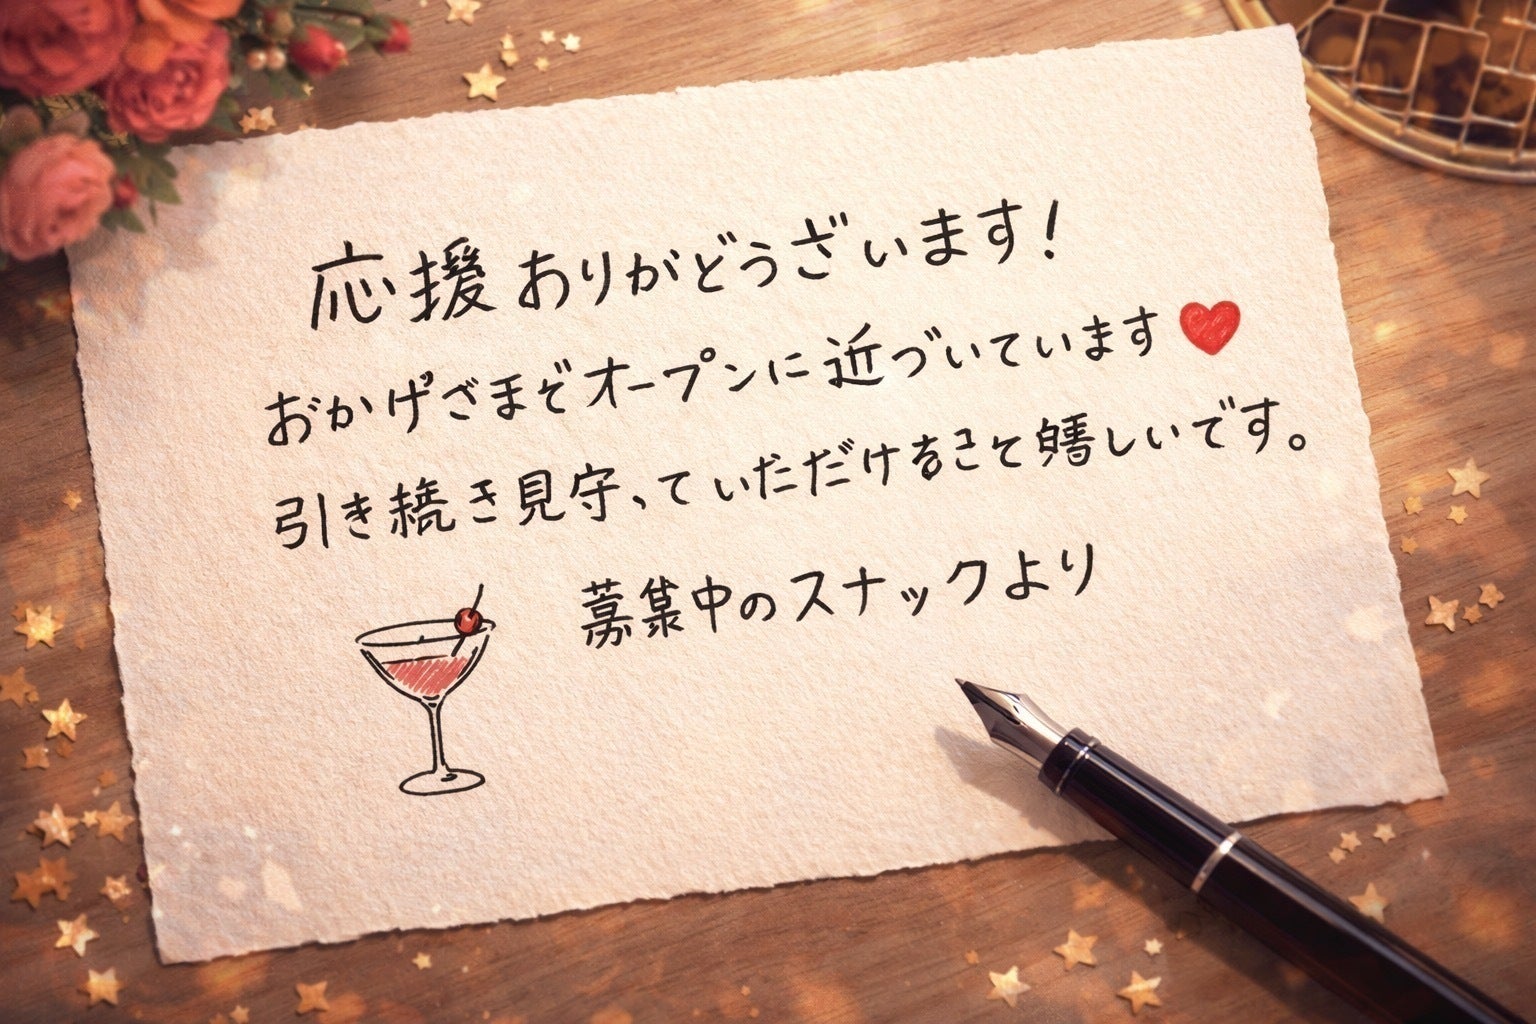 応援ありがどうございます!
おかげざまぞオープンに近づいています
引き続き見守っていただけること嬉しいです。
募集中のスナックより